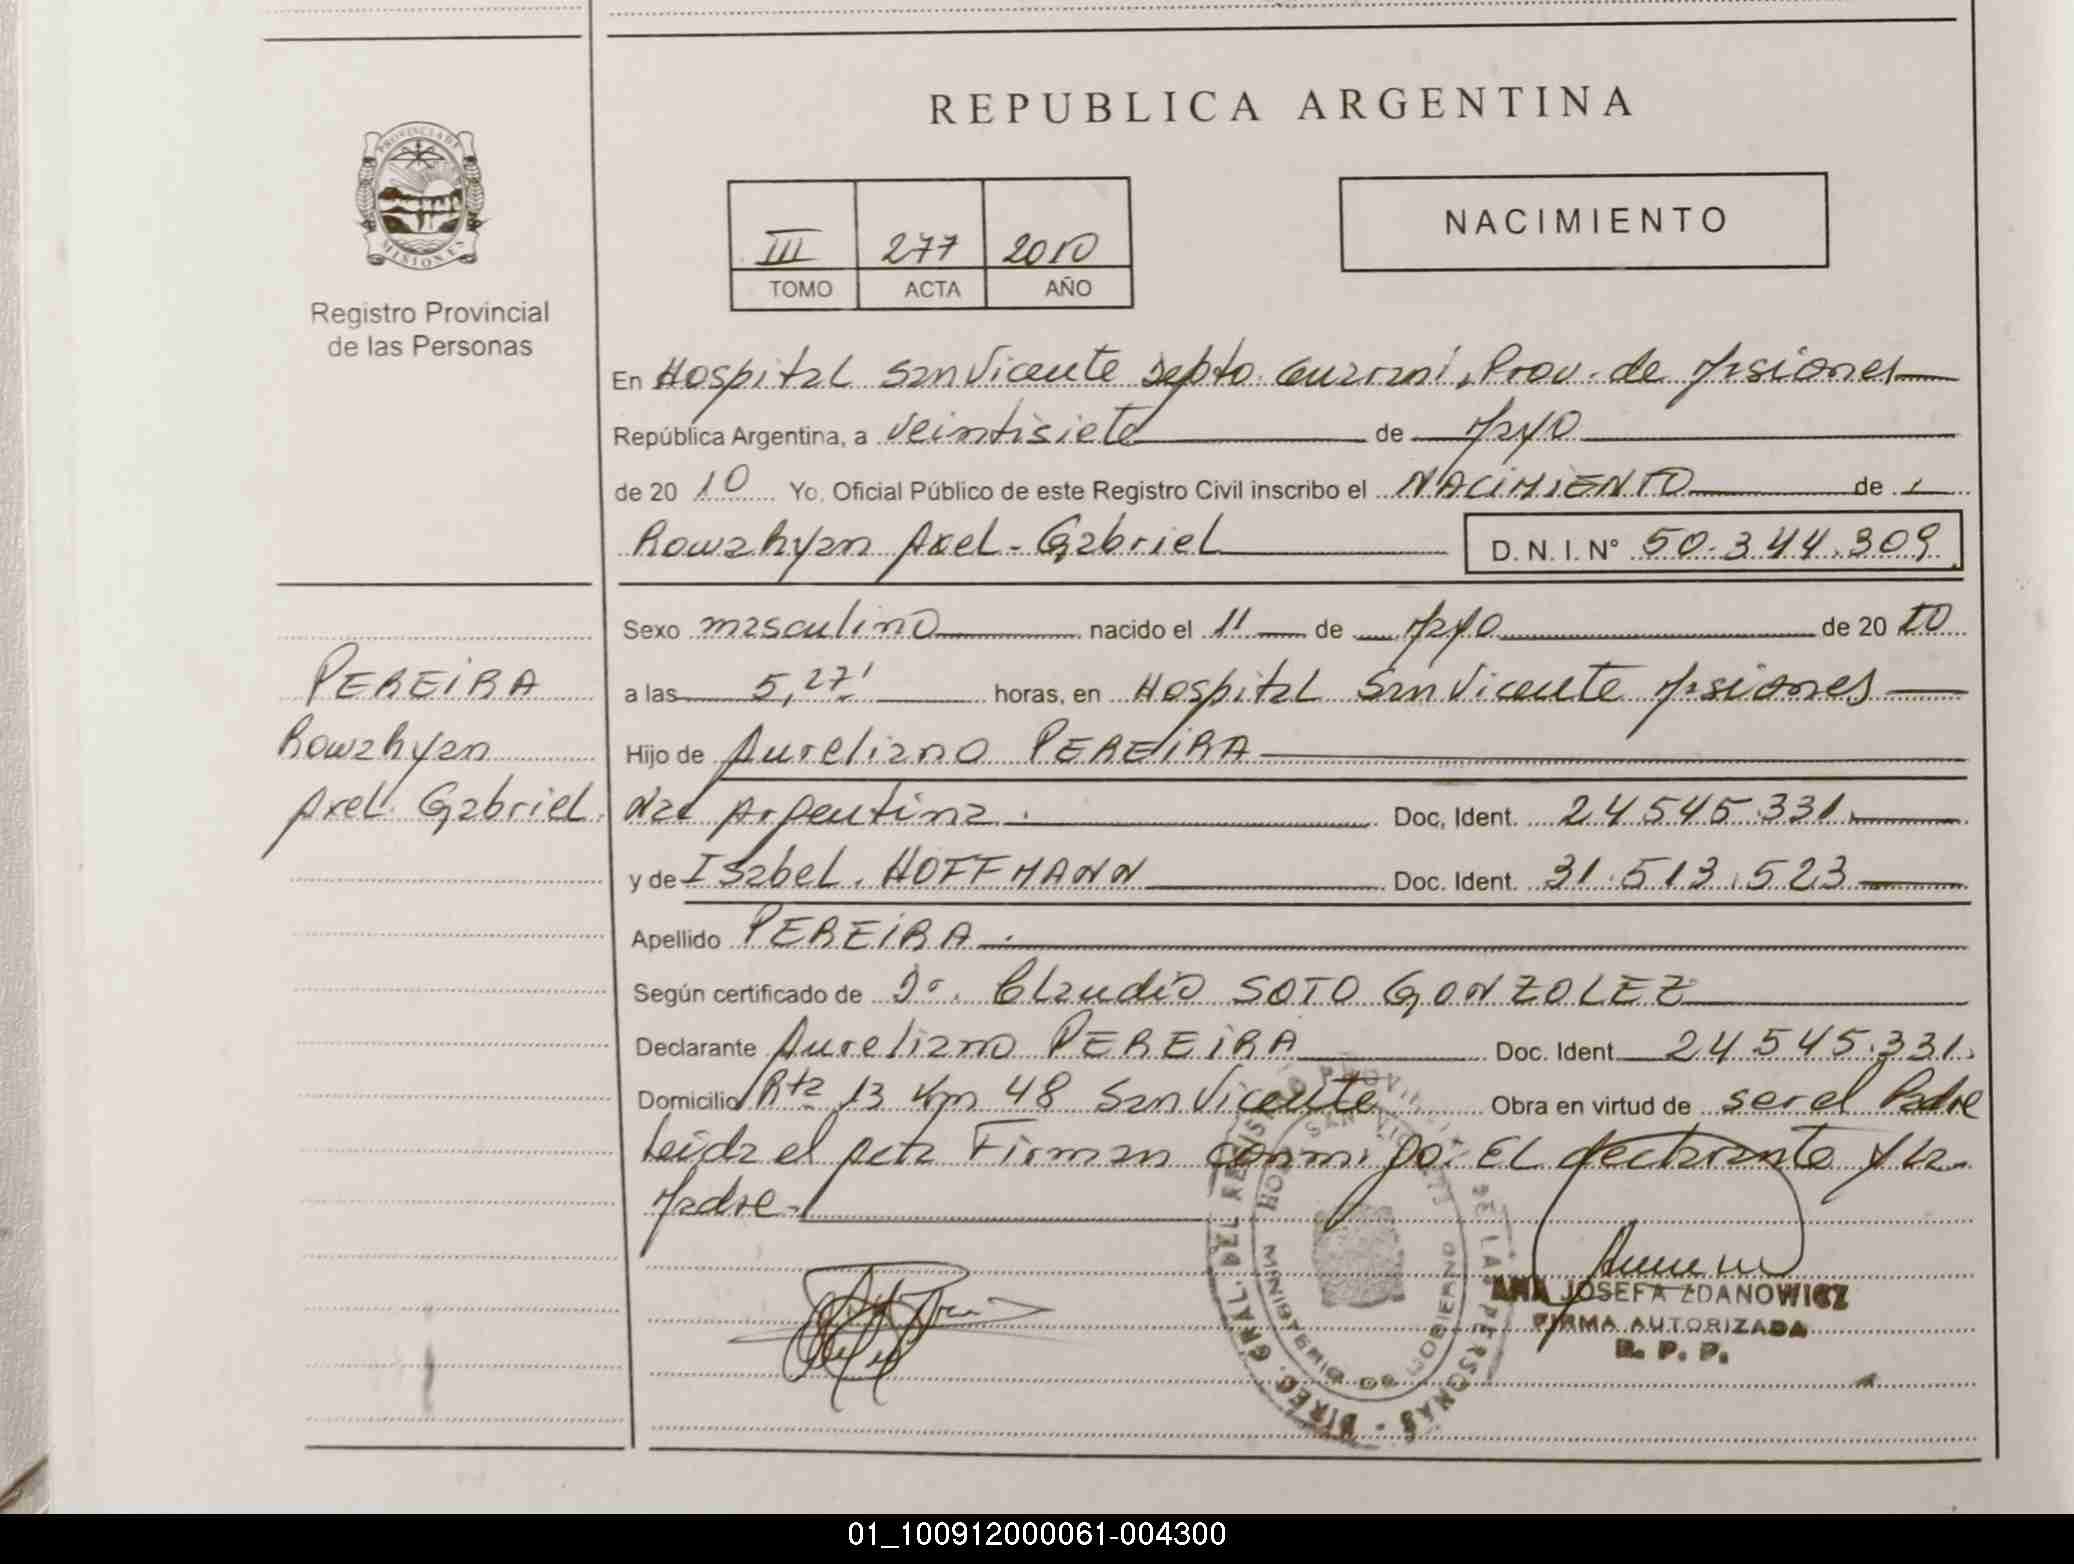 REPUBLICA ARGENTINA
PROVINCIA DE MISIONES
Registro Provincial
de las Personas
III 277 2010
TOMO ACTA AÑO
NACIMIENTO
En Hospital San Vicente Depto. Guarani, Prov. de Misiones
República Argentina, a veintisiete de Mayo
de 20 10 Yo, Oficial Público de este Registro Civil inscribo el NACIMIENTO de
Rowahyan Axel-Gabriel D. N. I. Nº 50.344.309
PEREIRA
Rowahyan
Axel Gabriel.
Sexo masculino nacido el 11 de Mayo de 20 10
a las 5,27' horas, en Hospital San Vicente Misiones
Hijo de Aureliano PEREIRA
Nac Argentina. Doc. Ident. 24.545.331.
y de Isabel. HOFFMANN Doc. Ident. 31.513.523
Apellido PEREIRA.
Según certificado de Dr. Claudio SOTO GONZOLEZ
Declarante Aureliano PEREIRA Doc. Ident. 24.545.331.
Domicilio Rta 13 Km 48 San Vicente Obra en virtud de ser el Padre
Leida el acta Firman conmigo. El declarante y la
Madre-
DIREC. GRAL. DEL REGISTRO PROVINCIAL DE LAS PERSONAS
MINISTERIO DE GOBIERNO
ANA JOSEFA ZDANOWICZ
FIRMA AUTORIZADA
R. P. P.
01_100912000061-004300